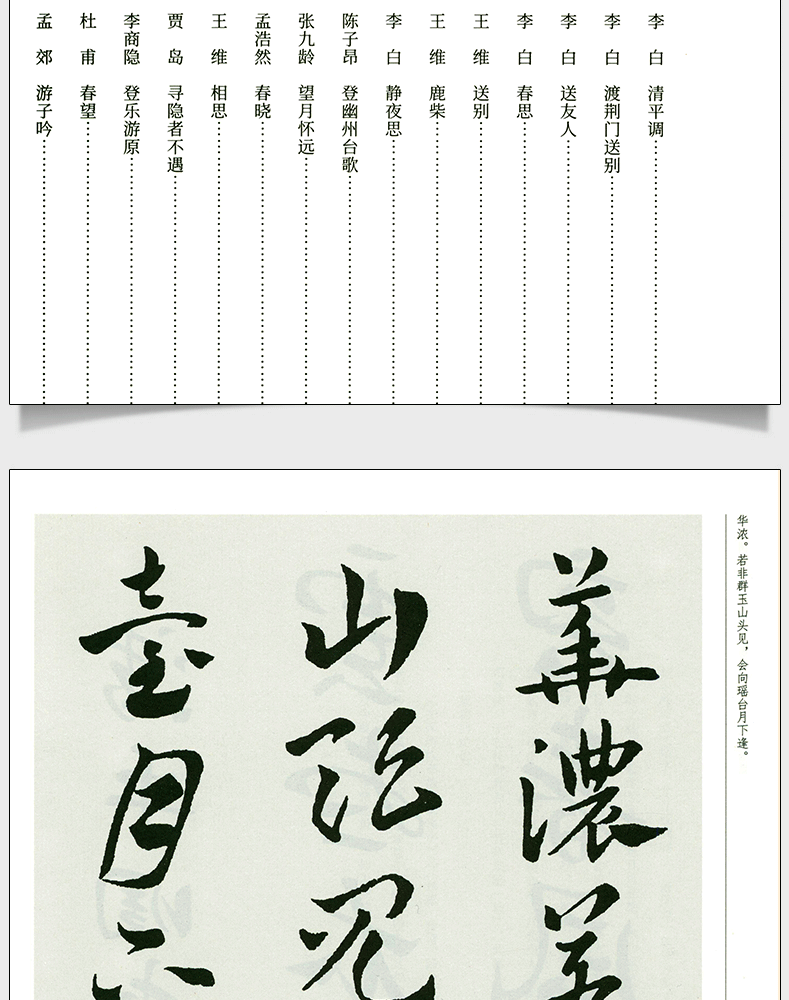 李 白 清平调
李 白 渡荆门送别
李 白 送友人
李 白 春思
王 维 送别
王 维 鹿柴
李 白 静夜思
陈子昂 登幽州台歌
张九龄 望月怀远
孟浩然 春晓
王 维 相思
贾 岛 寻隐者不遇
李商隐 登乐游原
杜 甫 春望
孟 郊 游子吟
华浓。若非群玉山头见，会向瑶台月下逢。
華濃若
山頭見
臺月下